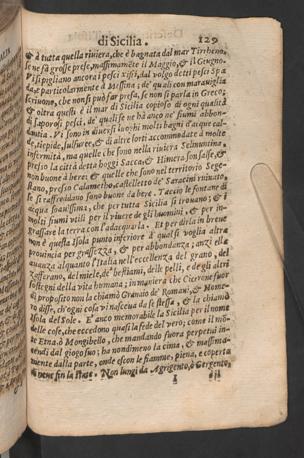 di Sicilia. 129
& à tutta quella riviera, che è bagnata dal mar Tirrheno,
se ne fà grosse prese, massimamēte il Maggio, & il Giugno.
Vi si pigliano ancora i pesci xifii, dal volgo detti pesci Spa
da, e particolarmente à Messina; de' quali con maraviglia
scrivono, che non si può far presa, se non si parla in Greco,
& oltra questi è il mar di Sicilia copioso di ogni qualità
di saporosi pesci, de' quali se ne hà anco ne' fiumi abbon-
dantia. Vi sono in diversi luoghi molti bagni d'acque cal-
de, tiepide, sulfuree, & di altre sorti accommodate à molte
infermità, ma quelle che sono nella riviera Selinuntina,
presso la città detta hoggi Sacca, & Himera son salse, &
non buone à bere: & quelle che sono nel territorio Sege-
stano, presso Calametho, castelletto de' Saracini ruinato,
se si raffreddano sono buone da bere. Taccio le fontane di
acqua soavissima, che per tutta Sicilia si trovano; & i
molti fiumi utili per il vivere de gli huomini, & per in-
grassare la terra con l'adacquarla. Et per dirla in breve
non è questa Isola punto inferiore à qual si voglia altra
provincia per grassezza, & per abbondanza; anzi ella
avanza alquanto l'Italia nell'eccellenza del grano, del
Zafferano, del miele, de' bestiami, delle pelli, e degli altri
sostegni della vita humana; in maniera che Cicerone fuor
di proposito non la chiamò Granaio de' Romani, & Home-
ro disse, ch'ogni cosa vi nasceva da se stessa, & la chiamò
Isola del Sole. È anco memorabile la Sicilia per i nomi
delle cose, che eccedono quasi la fede del vero; come il mō-
te Etna, ò Mongibello, che mandando fuora perpetui in-
cendi dal giogo suo; ha nondimeno la cima, & massima-
mente dalla parte, onde escon le fiamme, piena, e coperta
di neve fin la state. Non lungi da Agrigento, ò Gergento,